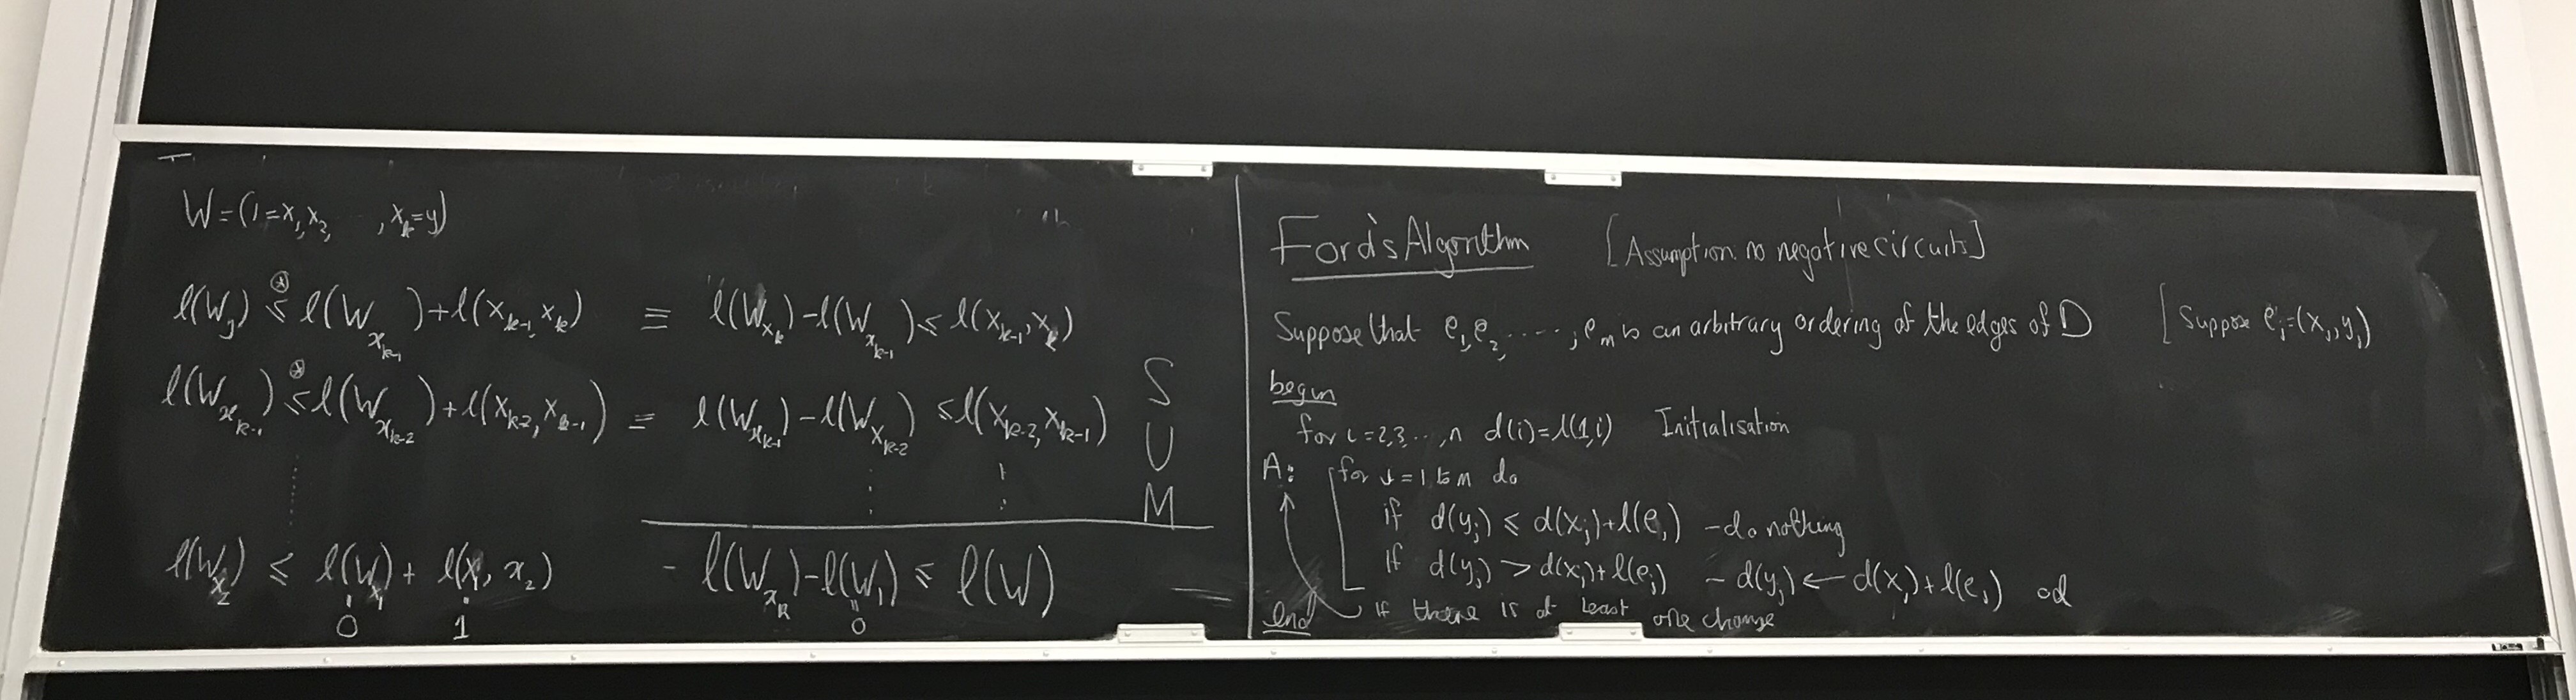 W=(1=x₁,x₂, ,xₖ=y)
ℓ(W_y) ≤^⊛ ℓ(W_{x_{k-1}})+ℓ(x_{k-1},x_k) ≡ ℓ(W_{x_k})-ℓ(W_{x_{k-1}}) ≤ ℓ(x_{k-1},x_k)
ℓ(W_{x_{k-1}}) ≤^⊛ ℓ(W_{x_{k-2}})+ℓ(x_{k-2},x_{k-1}) ≡ ℓ(W_{x_{k-1}})-ℓ(W_{x_{k-2}}) ≤ ℓ(x_{k-2},x_{k-1})
S
U
M
ℓ(W_{x_2}) ≤ ℓ(W_{x_1}) + ℓ(x_1, x_2) - ℓ(W_{x_k})-ℓ(W_1) ≤ ℓ(W)
0 1 0
Ford's Algorithm [Assumption no negative circuits]
Suppose that e₁,e₂,.....,e_m is an arbitrary ordering of the edges of D [Suppose e_j=(x_j,y_j)
begin
for i=2,3,..,n d(i)=ℓ(1,i) Initialisation
A: for j=1 to m do
if d(y_j) ≤ d(x_j)+ℓ(e_j) - do nothing
If d(y_j) > d(x_j)+ℓ(e_j) - d(y_j) ← d(x_j)+ℓ(e_j) od
If there is at least one change
end